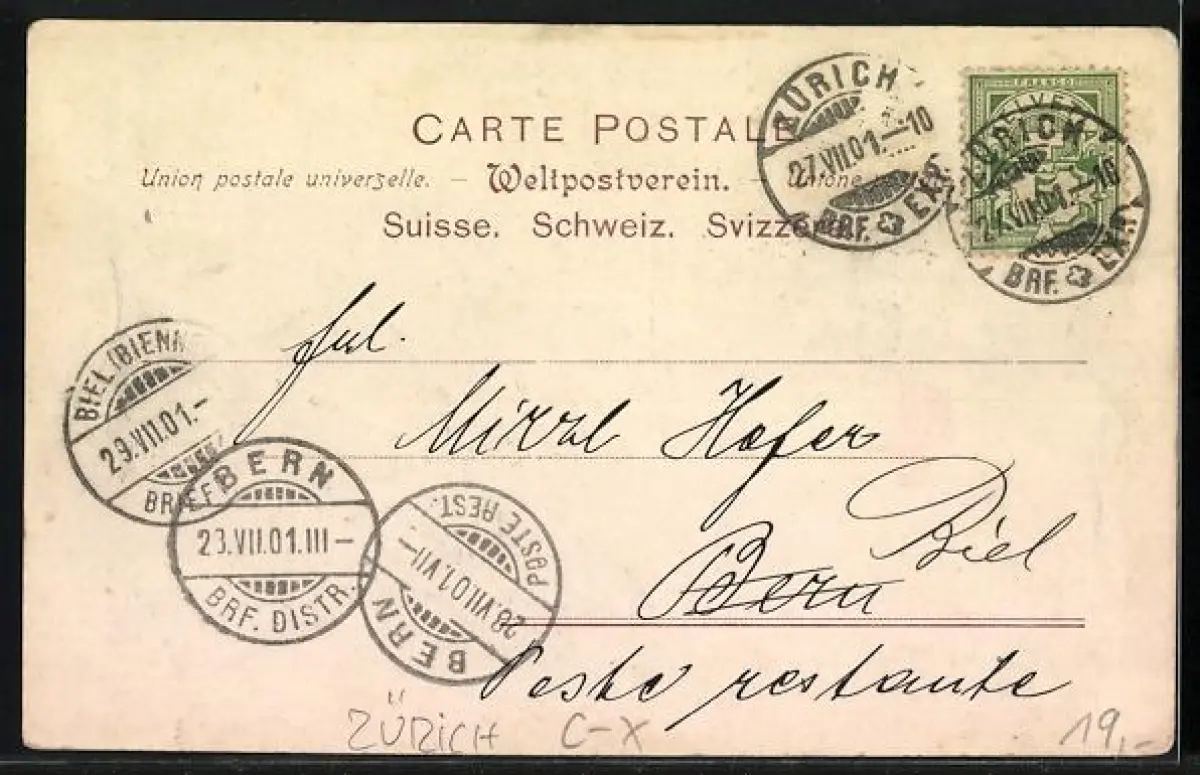 CARTE POSTALE
Union postale universelle. – Weltpostverein. – Unione
Suisse. Schweiz. Svizzera
ZÜRICH
27.VII.01.–10
BRF. EXP.
FRANCO
HELVETIA
ZÜRICH
27.VII.01.–10
BRF. EXP.
frl.
Mizzl Hofer
Biel
Bern
Poste restante
BIEL (BIENN
29.VII.01.–
BRIEF
BERN
23.VII.01.III–
BRF. DISTR.
POSTE REST.
28.VII.01.VII–
BERN
ZÜRICH C-X 19,-